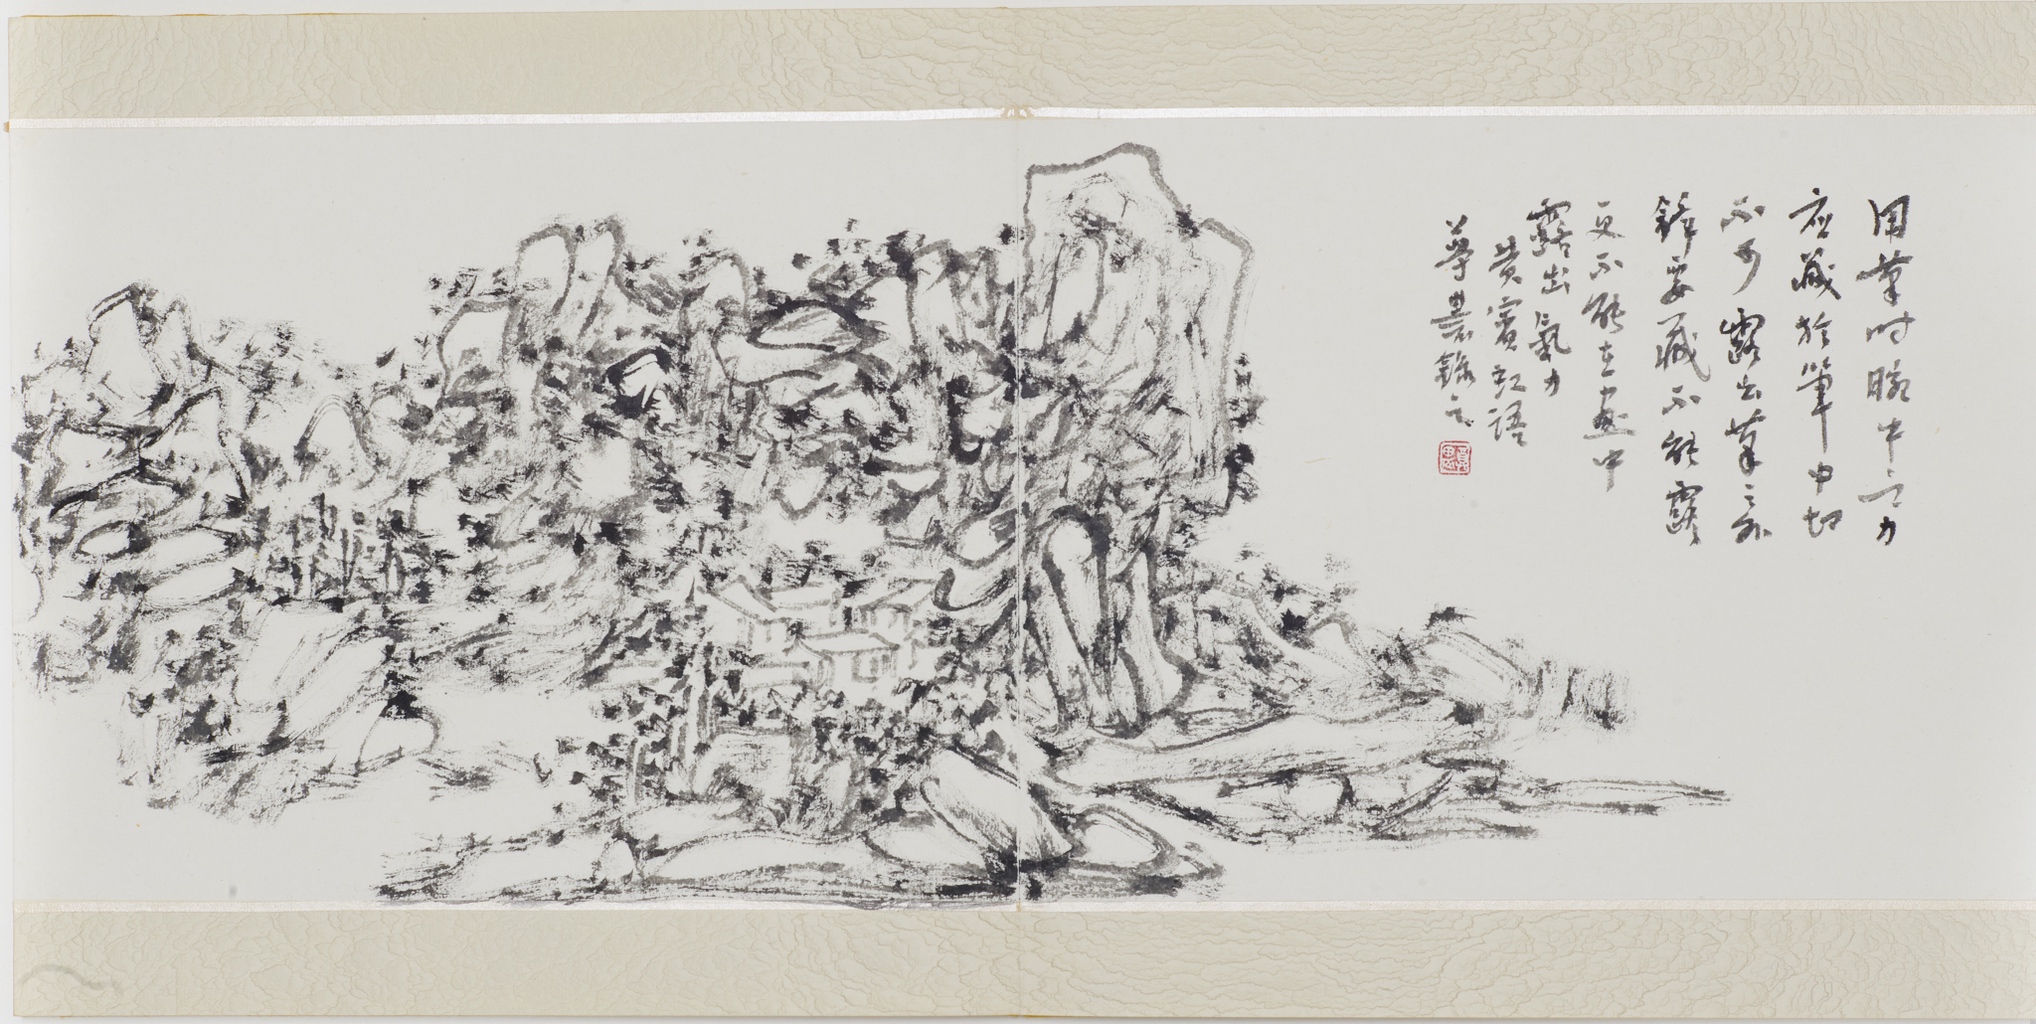 用筆时腕中之力
应藏於筆中切
不可露出筆之外
鋒要藏不能露
更不能在画中
露出氣力
黄賓虹語
錄之